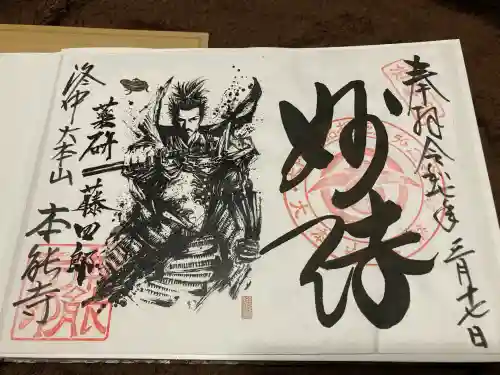 奉拝 令和
三月十七日
妙
薬研藤四郎
洛中大本山 本能寺